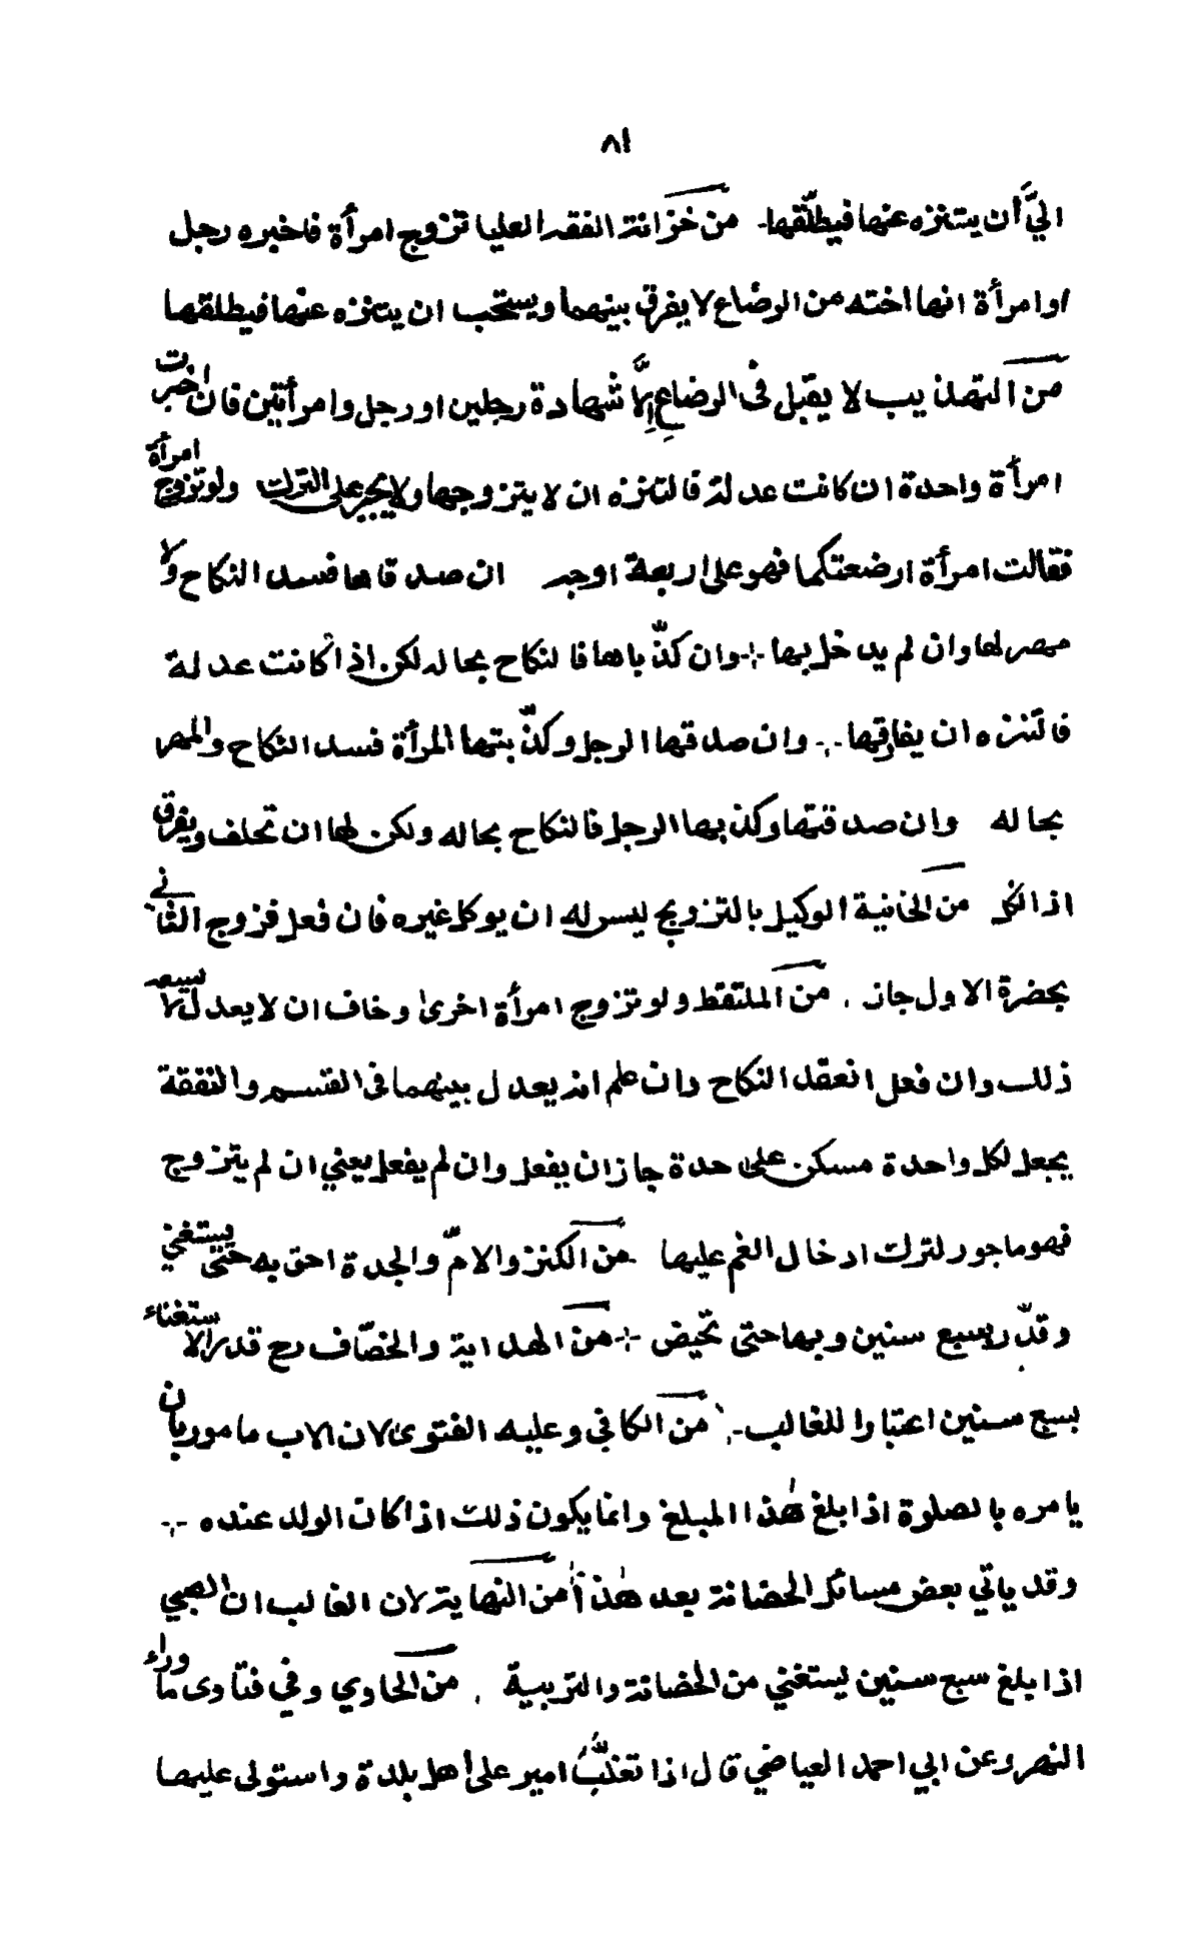 ٨١
اليَّ أن يتنزه عنها فيطلّقها ∴ من خزانة الفقه العليا تزوج امرأة فاخبره رجل
اوامرأة انها اخته من الرضاع لا يفرق بينهما ويستحب ان يتنزه عنها فيطلقها
من التهذيب لا يقبل فى الرضاعِ إلَّا شهادة رجلين او رجل وامرأتين فان اخبرت
امرأة واحدة ان كانت عدلة فالتنزه ان لا يتزوجها ولا يجبر على الترك ولو تزوج امرأة
فقالت امرأة ارضعتكما فهو على اربعة اوجه ان صدقاها فسد النكاح ولا
مهر لها وان لم يدخل بها ∴ وان كذّباها فالنكاح بحاله لكن اذا كانت عدلة
فالتنزه ان يفارقها ∴ وان صدقها الرجل وكذّبتها المرأة فسد النكاح والمهر
بحاله وان صدقتها وكذبها الرجل فالنكاح بحاله ولكن لها ان تحلف ويفرق
اذا نكل من الخانية الوكيل بالتزويج ليس له ان يوكل غيره فان فعل فزوج الثاني
بحضرة الاول جاز . من الملتقط ولو تزوج امرأة اخرى وخاف ان لا يعدل لا يسعه
ذلك وان فعل انعقد النكاح وان علم انه يعدل بينهما فى القسم والنفقة
يجعل لكل واحدة مسكن على حدة جاز ان يفعل وان لم يفعل يعني ان لم يتزوج
فهو ماجور لترك ادخال الغم عليها من الكنز والامّ والجدة احق به حتى يستغني
وقدّر بسبع سنين وبها حتى تحيض ∴ من الهداية والخصّاف رح قدر الاستغناء
بسبع سنين اعتبارا للغالب ∴ من الكافي وعليه الفتوى لان الاب مامور بان
يامره بالصلوة اذا بلغ هذا المبلغ وانما يكون ذلك اذا كان الولد عنده ∴
وقد ياتي بعض مسائل الحضانة بعد هذا من النهاية لان الغالب ان الصبي
اذا بلغ سبع سنين يستغني من الحضانة والتربية . من الحاوي وفي فتاوى ما وراء
النهر وعن ابي احمد العياضي قال اذا تغلّب امير على أهل بلدة واستولى عليها